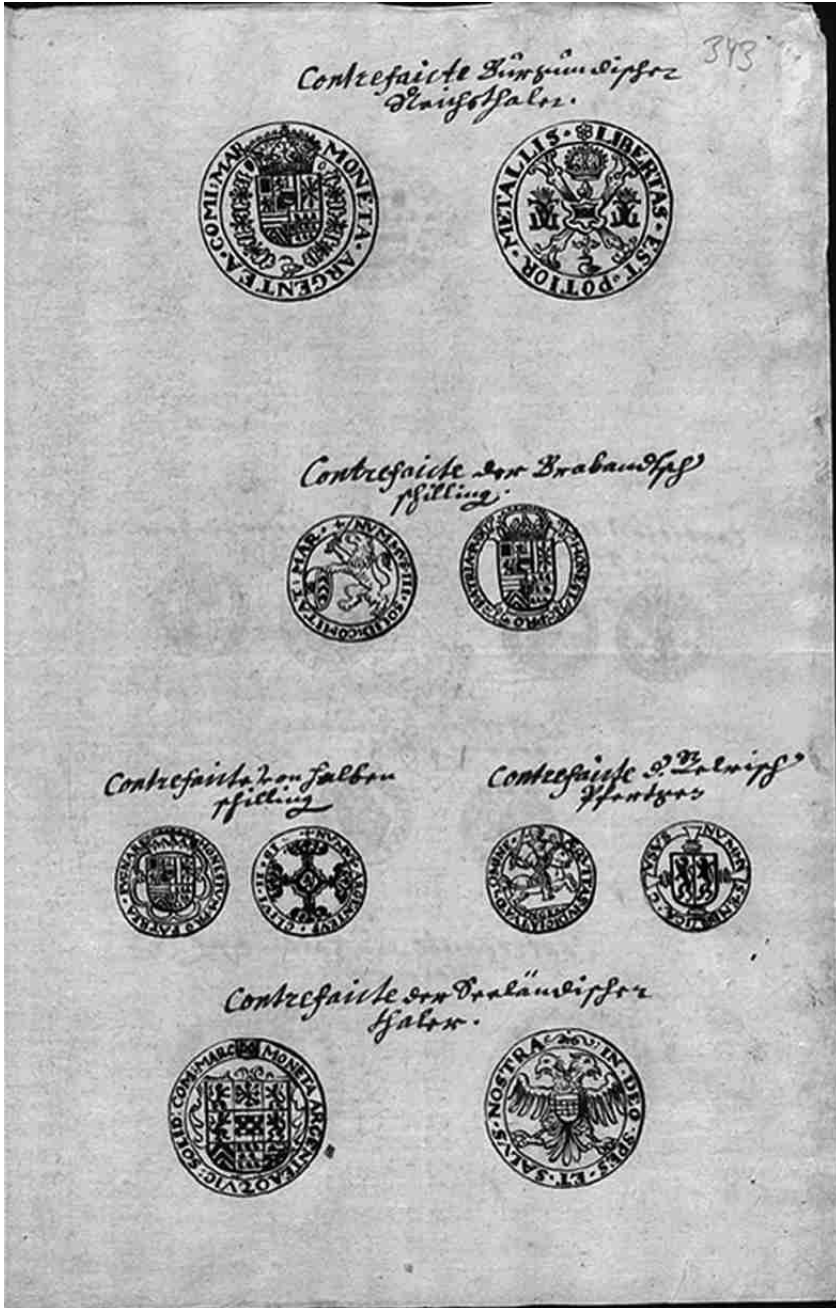 343
Contrefaicte Burgundischer
Reichsthaler.
MONETA · ARGENTEA · COMI : MAR
LIBERTAS · EST · POTIOR · METALLIS ·
Contrefaicte der Brabandtsch
schilling.
+ NVMMVS · III · SOLID · COMITAT : MAR ·
PRO · PATRIA
Contrefaicte von halben
schilling
Contrefaicte d. Gelrisch
PRO PATRIA
NVMVS ARGENTEVS
Contrefaicte der Seeländischer
thaler.
MONETA ARGENTEA · SOLID · COM : MARC
IN · DEO · SPES · ET · SALVS · NOSTRA